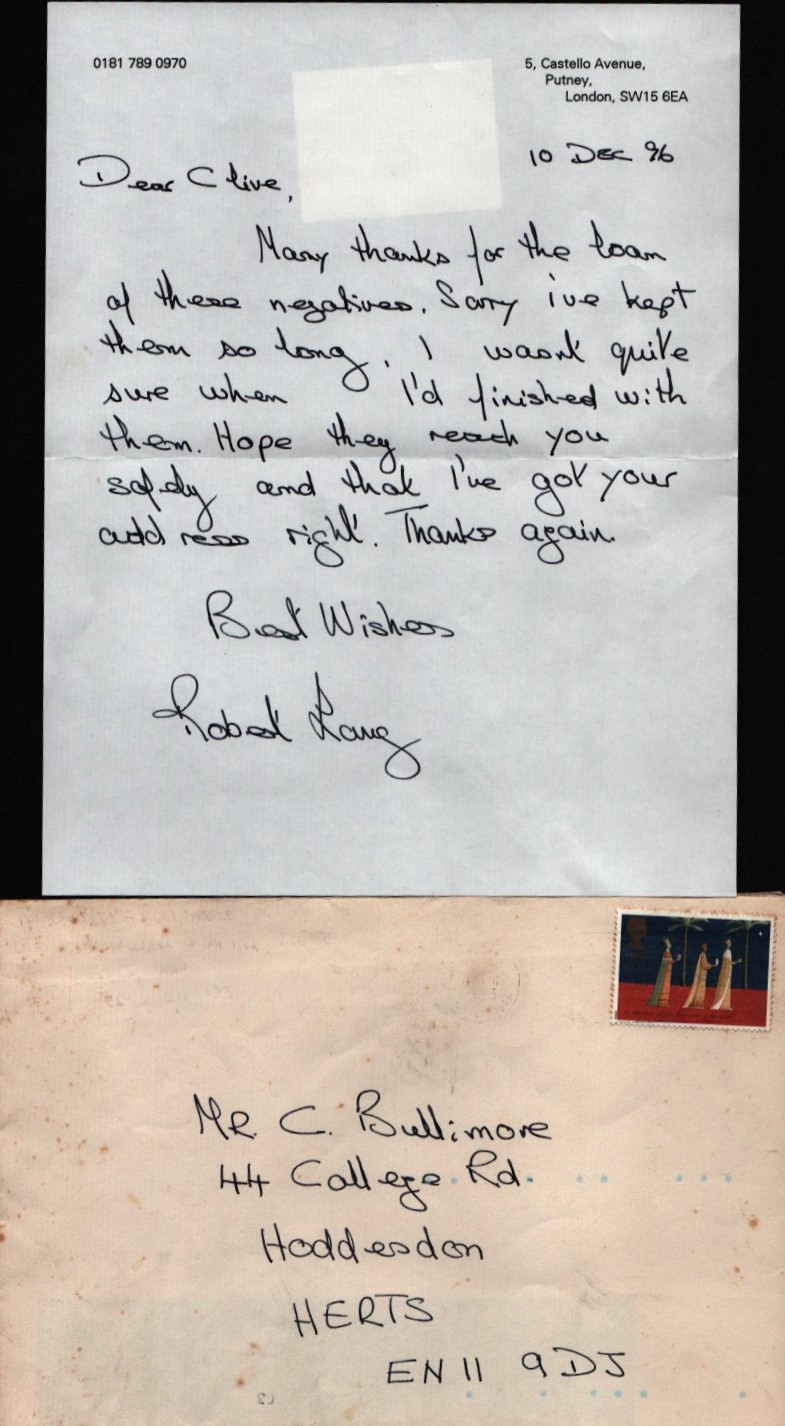 0181 789 0970
5, Castello Avenue,
Putney,
London, SW15 6EA
10 DEC 96
Dear Clive,
Many thanks for the loan
of these negatives. Sorry i've kept
them so long, I wasn't quite
sure when I'd finished with
them. Hope they reach you
safely and that I've got your
address right. Thanks again.
Best Wishes
Robert Lang
MR. C. Bullimore
44 College Rd.
Hoddesdon
HERTS
EN11 9DJ